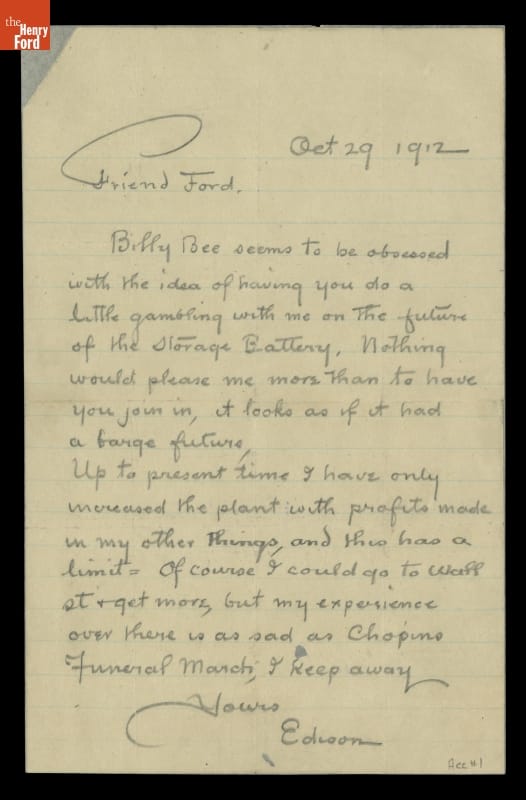 the
Henry
Ford
Oct 29 1912
Friend Ford.
Billy Bee seems to be obsessed
with the idea of having you do a
little gambling with me on the future
of the Storage Battery. Nothing
would please me more than to have
you join in, it looks as if it had
a large future,
Up to present time I have only
increased the plant with profits made
in my other things, and this has a
limit = Of course I could go to Wall
st + get more, but my experience
over there is as sad as Chopins
Funeral March, I keep away
Yours
Edison
Acc #1